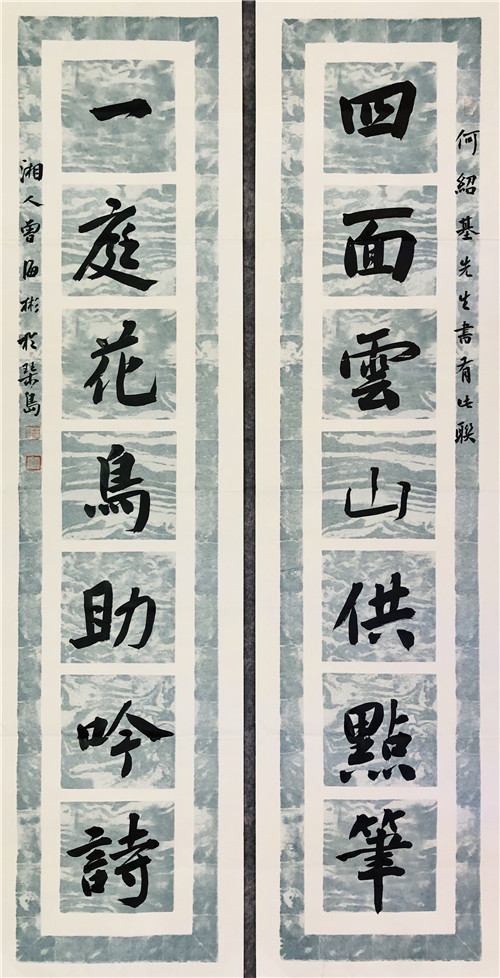 四面雲山供點筆
何紹基先生書有此聯
一庭花鳥助吟詩
湘人曾海彬於琴島